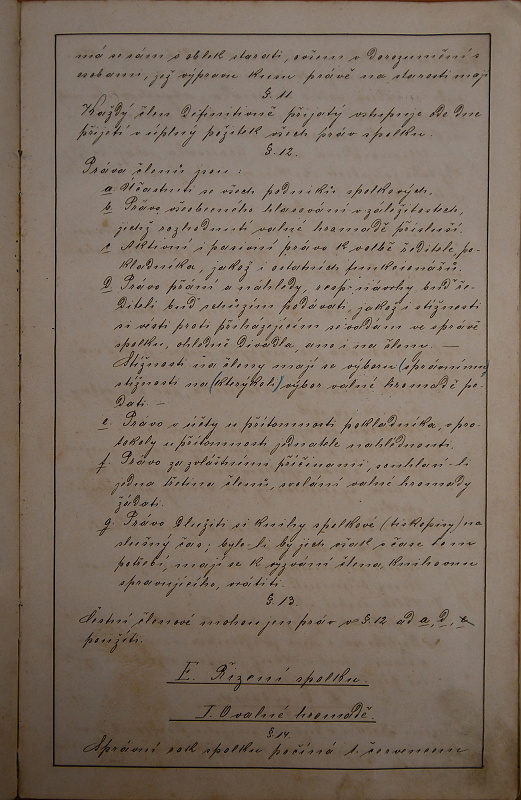 má se sám o oblek starati, ovšem v dorozumění s
osobami, jež výpravu kusu právě na starosti mají
§. 11.
Každý člen difinitivně přijatý vstupuje ode dne
přijetí v úplný požitek všech práv spolku.
§. 12.
Práva členů jsou:
a Účastniti se všech podniků spolkových.
b. Právo všeobecného hlasování v záležitostech,
jichž rozhodnutí valné hromadě přísluší.
c Aktivní i pasivní právo k volbě ředitele, po-
kladníka, jakož i ostatních funkcionářů.
d Právo přání a náhledy, resp. návrhy buď ře-
diteli buď schůzím podávati, jakož i stížnosti
si vésti proti přicházejícím závadám ve správě
spolku, ohledně divadla, ano i na členu. —
Stížnosti na členy mají se výboru (správnímu)
stížnosti na (kterýkoli) výbor valné hromadě po-
dati. —
e. Právo v účty u přítomnosti pokladníka, v pro-
tokoly u přítomnosti jednatele nahlédnouti.
f. Právo za zvláštními příčinami, souhlasí-li
jedna třetina členů, svolání valné hromady
žádati.
g. Právo dlužiti si knihy spolkové (tiskopisy) na
slušný čas; bylo-li by jich však v čase tom
potřebí, mají se k vyzvání člena, knihovnu
spravujícího, vrátiti.
§. 13.
Čestní členové mohou jen práv v §. 12 ad a, d, e
použíti.
E. Řízení spolku.
I. O valné hromadě.
§. 14.
Správní rok spolku počíná 1. červencem